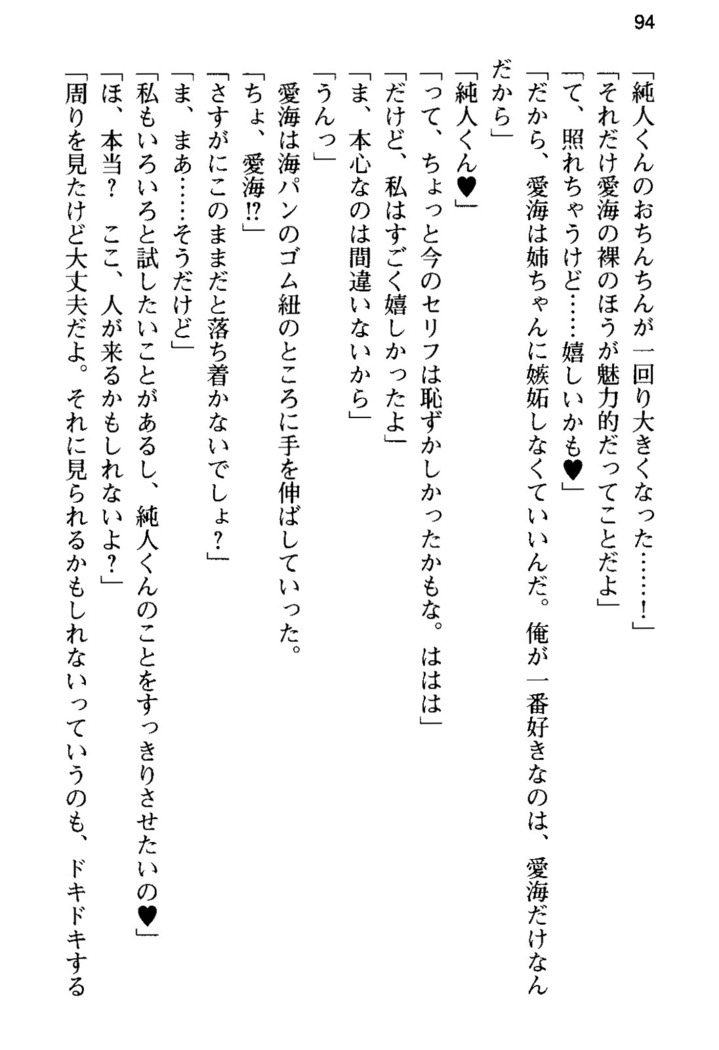 94
「純人くんのおちんちんが一回り大きくなった……！」
「それだけ愛海の裸のほうが魅力的だってことだよ」
「て、照れちゃうけど……嬉しいかも♥」
「だから、愛海は姉ちゃんに嫉妬しなくていいんだ。俺が一番好きなのは、愛海だけなん
だから」
「純人くん♥」
「って、ちょっと今のセリフは恥ずかしかったかもな。ははは」
「だけど、私はすごく嬉しかったよ」
「ま、本心なのは間違いないから」
「うんっ」
愛海は海パンのゴム紐のところに手を伸ばしていった。
「ちょ、愛海!?」
「さすがにこのままだと落ち着かないでしょ？」
「ま、まあ……そうだけど」
「私もいろいろと試したいことがあるし、純人くんのことをすっきりさせたいの♥」
「ほ、本当？　ここ、人が来るかもしれないよ？」
「周りを見たけど大丈夫だよ。それに見られるかもしれないっていうのも、ドキドキする